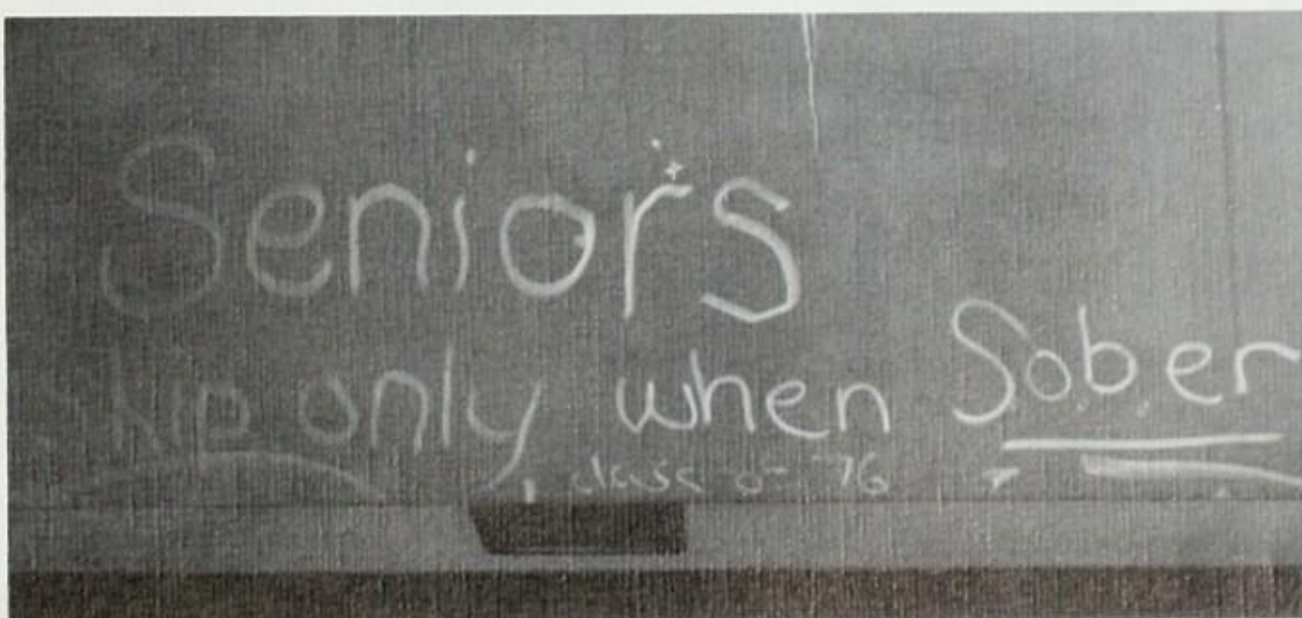 Seniors
Skip only when Sober
class of 76